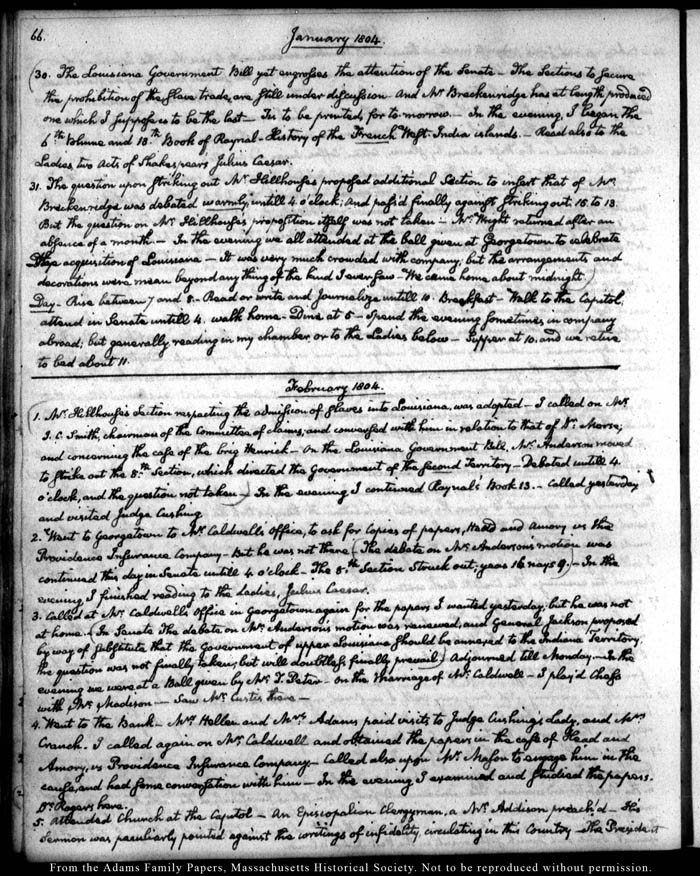 66.
January 1804.
30. The Louisiana Government Bill yet engrosses the attention of the Senate — The Sections to secure
the prohibition of the slave trade, are still under discussion. And Mr Breckenridge has at length produced
one which I suppose is to be the last — Tis to be printed for to-morrow. — In the evening, I began the
6th Volume and 13th Book of Raynal — History of the French West-India islands. — Read also to the
Ladies, two acts of Shakespear's Julius Caesar.
31. The question upon striking out Mr Hillhouse's proposed additional Section to insert that of Mr
Breckenridge was debated warmly, untill 4. o'clock; and pass'd finally against striking out. 15 to 13.
But the question on Mr Hillhouse's proposition itself was not taken — Mr Wright returned after an
absence of a month. — In the evening we all attended at the ball given at Georgetown to celebrate
the acquisition of Louisiana — It was very much crowded with company, but the arrangements and
decorations were mean beyond any thing of the kind I ever saw — We came home about midnight.
Day. Rise between 7 and 8. Read or write and Journalize untill 10. Breakfast — Walk to the Capitol,
attend in Senate untill 4. walk home — Dine at 5 — Spend the evening sometimes in company
abroad; but generally reading in my chamber or to the Ladies below — Supper at 10, and we retire
to bed about 11.
February 1804.
1. Mr Hillhouse's section respecting the admission of slaves into Louisiana, was adopted — I called on Mr
J. C. Smith, chairman of the Committee of claims; and conversed with him in relation to that of Dr Morse;
and concerning the case of the brig Henrich — On the Louisiana Government Bill, Mr Anderson moved
to strike out the 8th Section, which directed the Government of the second Territory — Debated untill 4.
o'clock, and the question not taken — In the evening I continued Raynal's Book 13. — Called yesterday
and visited Judge Cushing.
2. Went to Georgetown to Mr Caldwell's Office, to ask for Copies of papers, Head and Amory vs the
Providence Insurance Company — But he was not there. The debate on Mr Anderson's motion was
continued this day in Senate untill 4. o'clock — The 8th Section struck out; yeas 16 nays 9. — In the
evening, I finished reading to the Ladies, Julius Caesar.
3. Called at Mr Caldwell's Office in Georgetown again for the papers I wanted yesterday; but he was not
at home. In Senate the debate on Mr Anderson's motion was renewed, and General Jackson proposed
by way of substitute that the Government of upper Louisiana should be annexed to the Indiana Territory;
the question was not finally taken; but will doubtless finally prevail. Adjourned till Monday. — In the
evening we were at a Ball given by Mr T. Peter — On the Marriage of Mr Caldwell — I play'd Chess
with Mr Madison — Saw Mr Curtis there —
4. Went to the Bank — Mr Hellen and Mrs Adams paid visits to Judge Cushing's Lady, and Mrs
Cranch. I called again on Mr Caldwell and obtained the papers in the case of Head and
Amory, vs Providence Insurance Company — Called also upon Mr Mason to engage him in the
cause, and had some conversation with him — In the evening I examined and studied the papers.
Dr Rogers here.
5. Attended Church at the Capitol — An Episcopalian Clergyman, a Mr Addison preach'd — His
Sermon was peculiarly pointed against the writings of infidelity, circulating in this Country — The President
From the Adams Family Papers, Massachusetts Historical Society. Not to be reproduced without permission.